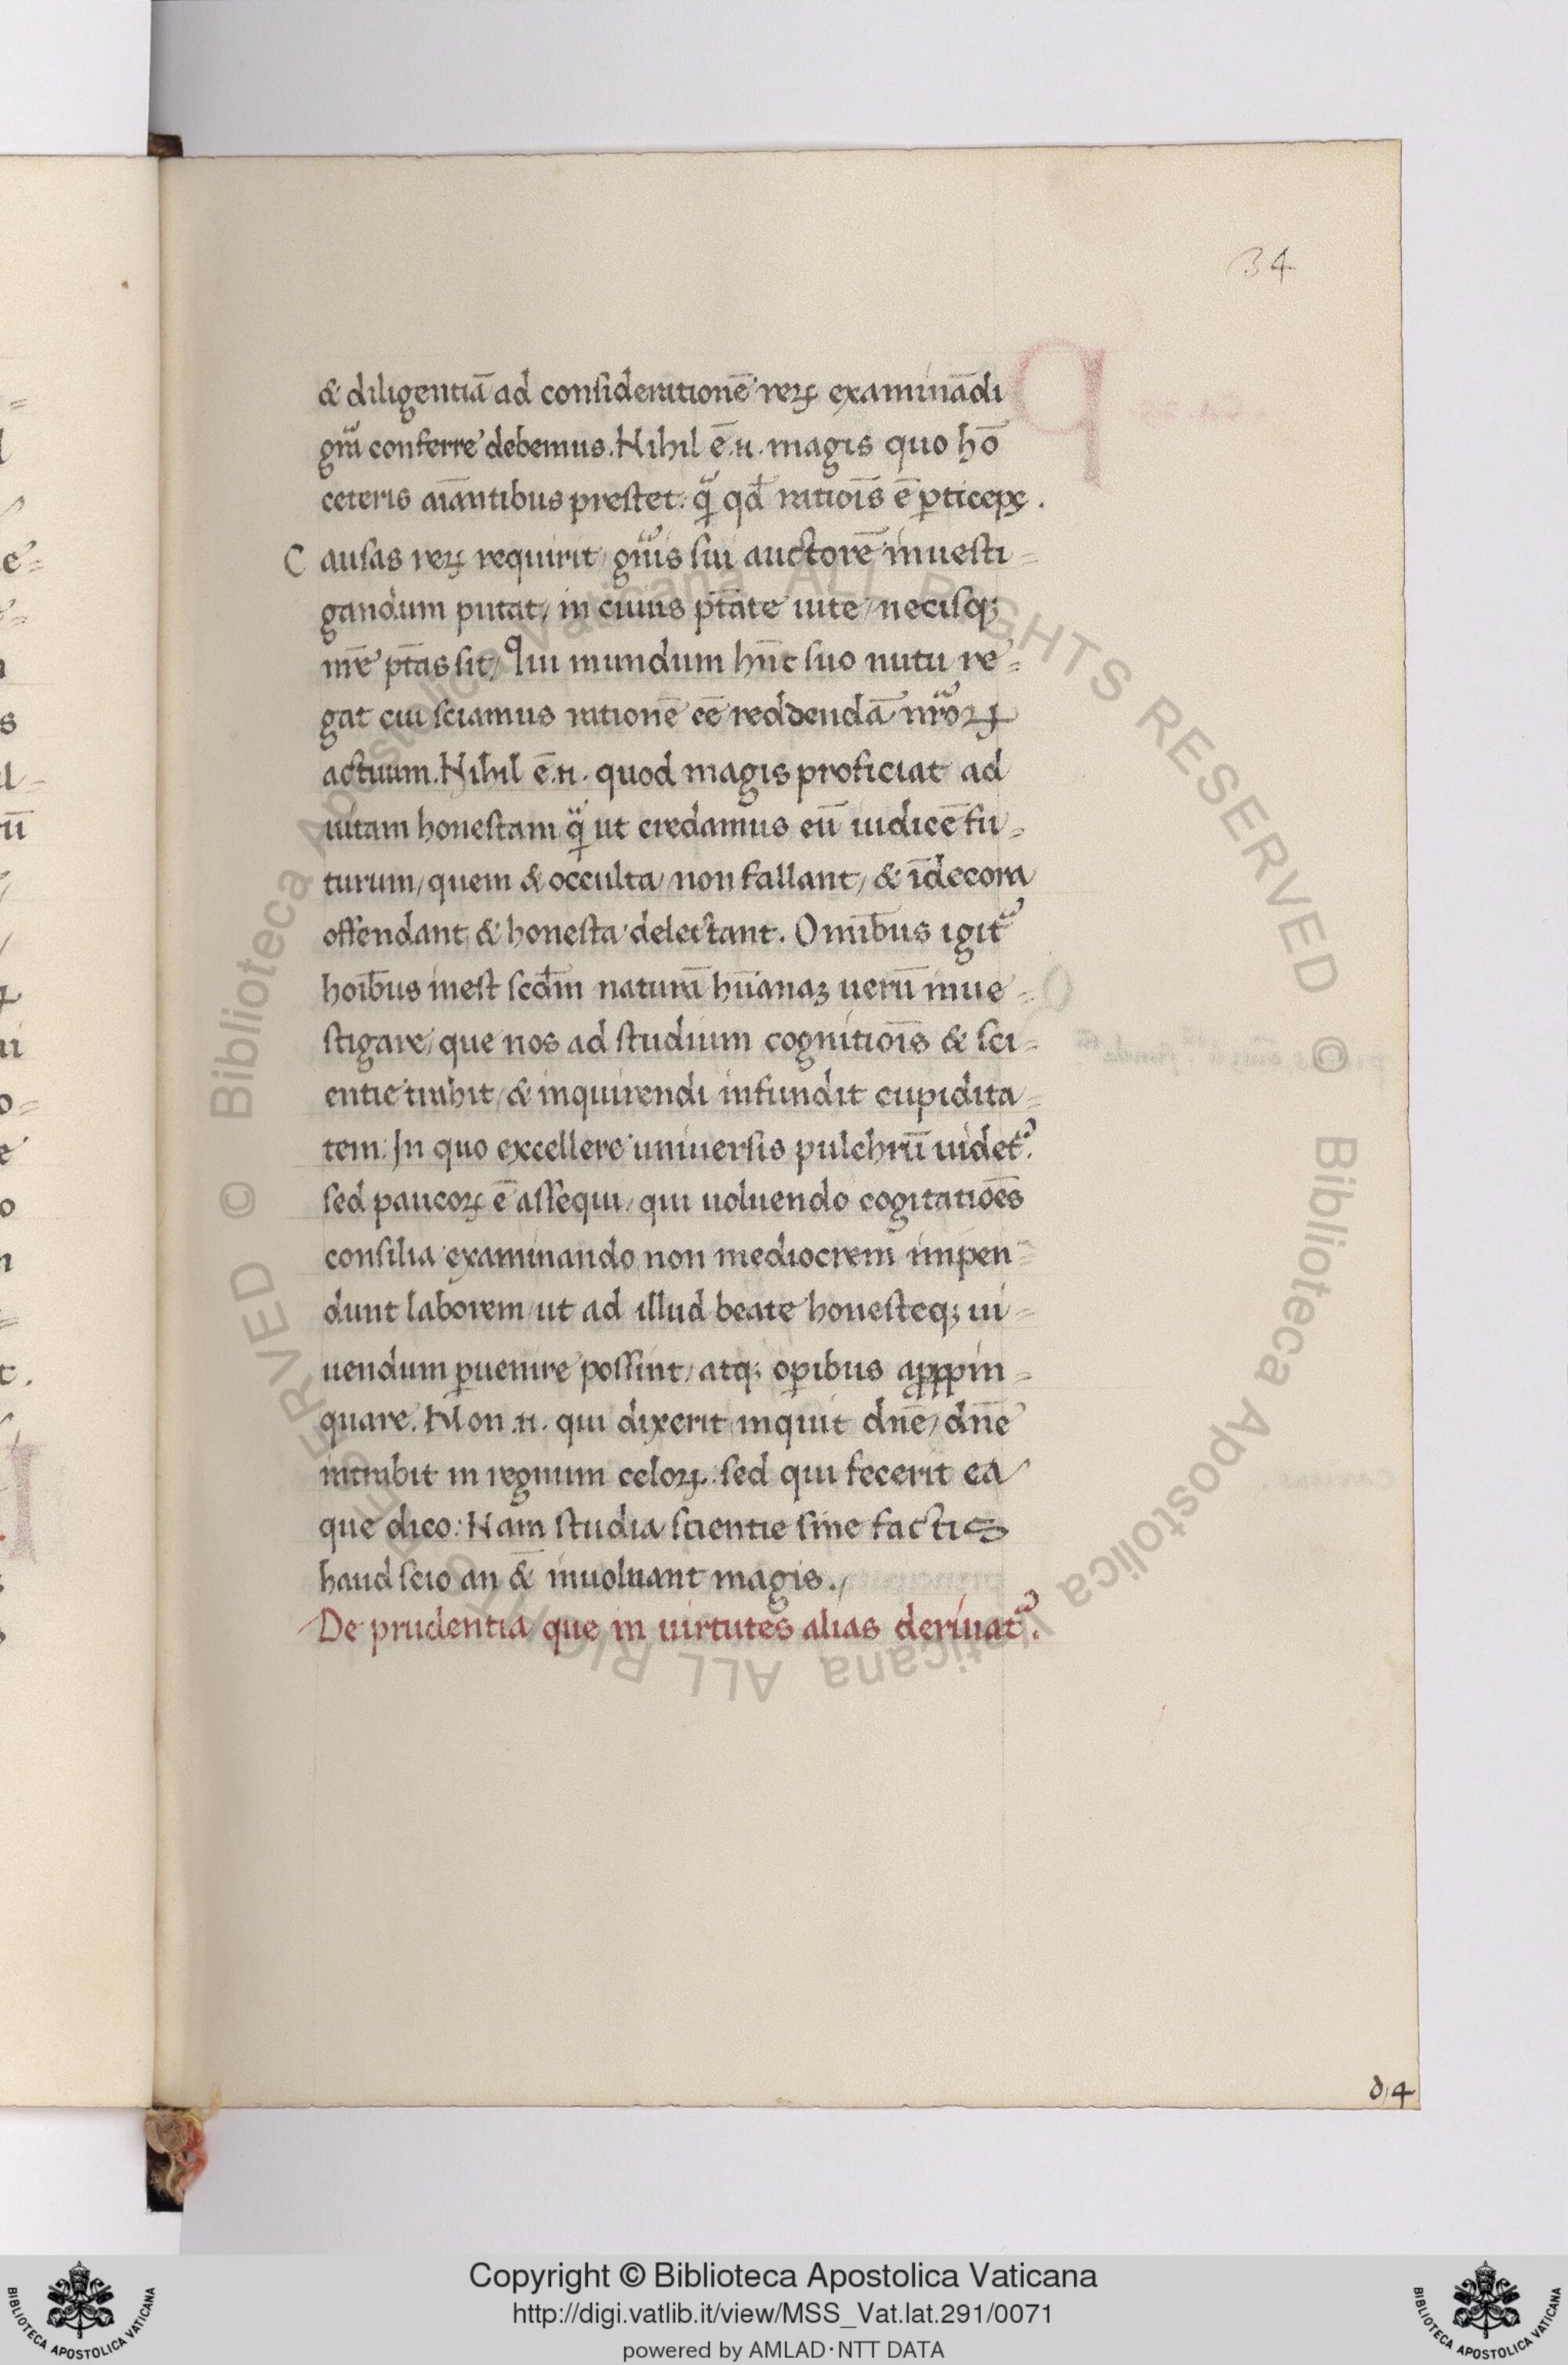 34
& diligentiā ad considerationē reꝝ examinādi
grᷓa conferre debemus. Nihil ē .n. magis quo hō
ceteris aiāntibus prestet: qᷓ qđ ratiōis ē ꝑticeps.
Causas reꝝ requirit / gnᷓis sui auctorē inuesti=
gandum putat / in cuius ptāte uite / necisqꝫ
nrē ptās sit / Qui mundum hūc suo nutu re=
gat cui sciamus rationē eē reddendā nrᷓoꝝ
actuum. Nihil ē .n. quod magis proficiat ad
uitam honestam qᷓ ut credamus eū iudicē fu=
turum / quem & occulta non fallant / & īdecora
offendant & honesta delectant. Omībus igitᷣ
hoībus inest scđm naturā hūanaꝫ uerū inue=
stigare / que nos ad studium cognitiōis & sci=
entie trahit / & inquirendi infundit cupidita=
tem: In quo excellere uniuersis pulchrū uidetᷣ.
sed paucoꝝ ē assequi / qui uoluendo cogitatiōes
consilia examinando non mediocrem impen=
dunt laborem / ut ad illud beate honesteqꝫ ui=
uendum ꝑuenire possint / atqꝫ oꝑibus aꝓꝓin=
quare. Non .n. qui dixerit inquit dn̄e / dn̄e
intrabit in regnum celoꝝ: sed qui fecerit ea
que dico: Nam studia scientie sine factis
haud scio an &̄ inuoluant magis./
De prudentia que in uirtutes alias deriuatᷣ.
d 4
Copyright © Biblioteca Apostolica Vaticana
http://digi.vatlib.it/view/MSS_Vat.lat.291/0071
powered by AMLAD·NTT DATA